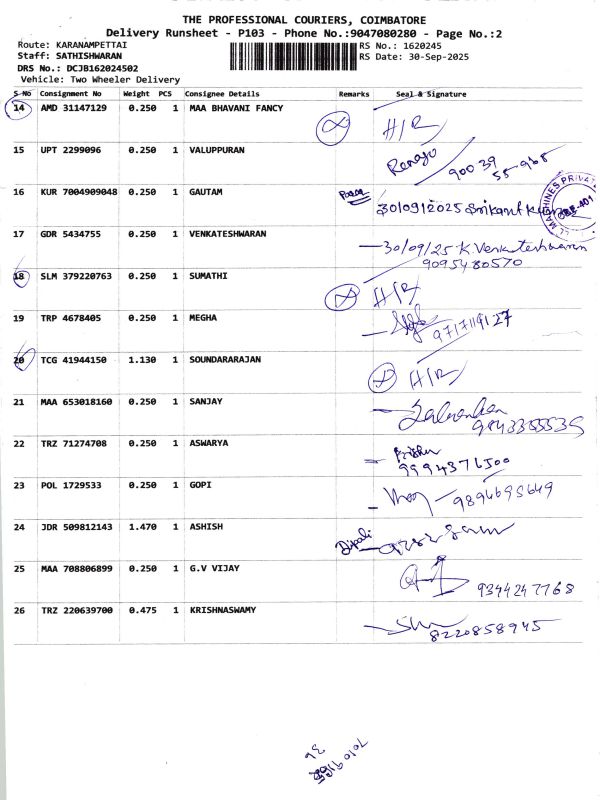 THE PROFESSIONAL COURIERS, COIMBATORE
Delivery Runsheet - P103 - Phone No.:9047080280 - Page No.:2
Route: KARANAMPETTAI
RS No.: 1620245
Staff: SATHISHWARAN
RS Date: 30-Sep-2025
DRS No.: DCJB162024502
Vehicle: Two Wheeler Delivery
S No Consignment No Weight PCS Consignee Details Remarks Seal & Signature
14 AMD 31147129 0.250 1 MAA BHAVANI FANCY H/R
15 UPT 2299096 0.250 1 VALUPPURAN
90039
55-965
16 KUR 7004909048 0.250 1 GAUTAM
30/09/2025 Srikant
17 GDR 5434755 0.250 1 VENKATESHWARAN
30/09/25 K. Venkateshwaran
9095480570
18 SLM 379220763 0.250 1 SUMATHI H/R
19 TRP 4678405 0.250 1 MEGHA
9717119127
20 TCG 41944150 1.130 1 SOUNDARARAJAN H/R
21 MAA 653018160 0.250 1 SANJAY
22 TRZ 71274708 0.250 1 ASWARYA
9994376500
23 POL 1729533 0.250 1 GOPI
9894695649
24 JDR 509812143 1.470 1 ASHISH
Dipali
25 MAA 708806899 0.250 1 G.V VIJAY
9344247768
26 TRZ 220639700 0.475 1 KRISHNASWAMY
8220858945